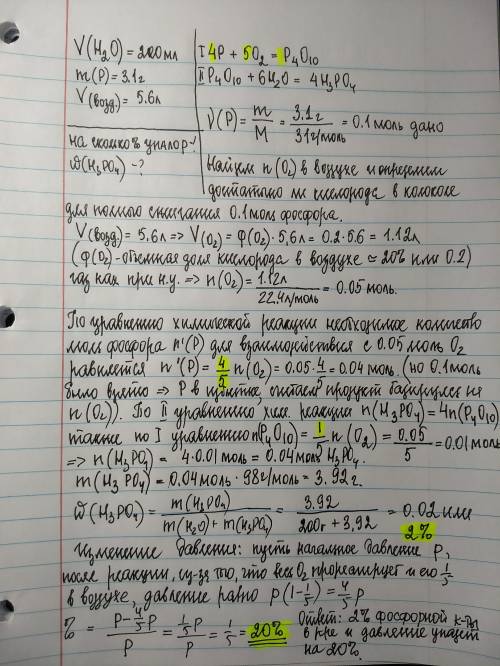 V(H₂O) = 200мл
m(P) = 3.1г
V(возд.) = 5.6л
на сколько % упал p-?
ω(H₃PO₄) -?
I 4P + 5O₂ = P₄O₁₀
II P₄O₁₀ + 6H₂O = 4H₃PO₄
ν(P) = m/M = 3.1г/31г/моль = 0.1 моль дано
Найдем n(O₂) в воздухе и определим
достаточно ли кислорода в колоколе
для полного сжигания 0.1 моль фосфора.
V(возд) = 5.6л => V(O₂) = φ(O₂)·5,6л = 0.2·5.6 = 1.12л
(φ(O₂)-объемная доля кислорода в воздухе ≈ 20% или 0.2)
газ как при н.у. => n(O₂) = 1.12л/22.4л/моль = 0.05 моль.
По уравнению химической реакции необходимое количество
моль фосфора n'(P) для взаимодействия с 0.05 моль O₂
равняется n'(P) = 4/5 n(O₂) = 0.05·4/5 = 0.04 моль. (но 0.1 моль
было взято => P в избытке, считаем продукт базируясь на
n(O₂)). По II уравнению хим. реакции n(H₃PO₄) = 4n(P₄O₁₀)
также по I уравнению n(P₄O₁₀) = 1/5 n(O₂) = 0.05/5 = 0.01 моль
=> n(H₃PO₄) = 4·0.01 моль = 0.04 моль H₃PO₄.
m(H₃PO₄) = 0.04 моль·98г/моль = 3.92г.
ω(H₃PO₄) = m(H₃PO₄)/m(H₂O) + m(H₃PO₄) = 3.92/200г + 3,92 = 0.02 или 2%
Изменение давления: пусть начальное давление P,
после реакции, из-за того, что весь O₂ прореагирует и его 1/5
в воздухе, давление равно p(1-1/5) = 4/5 p
% = P - 4/5 P/P = 1/5 P/P = 1/5 = 20%
Ответ: 2% фосфорной к-ты
в р-ре и давление упадет
на 20%.